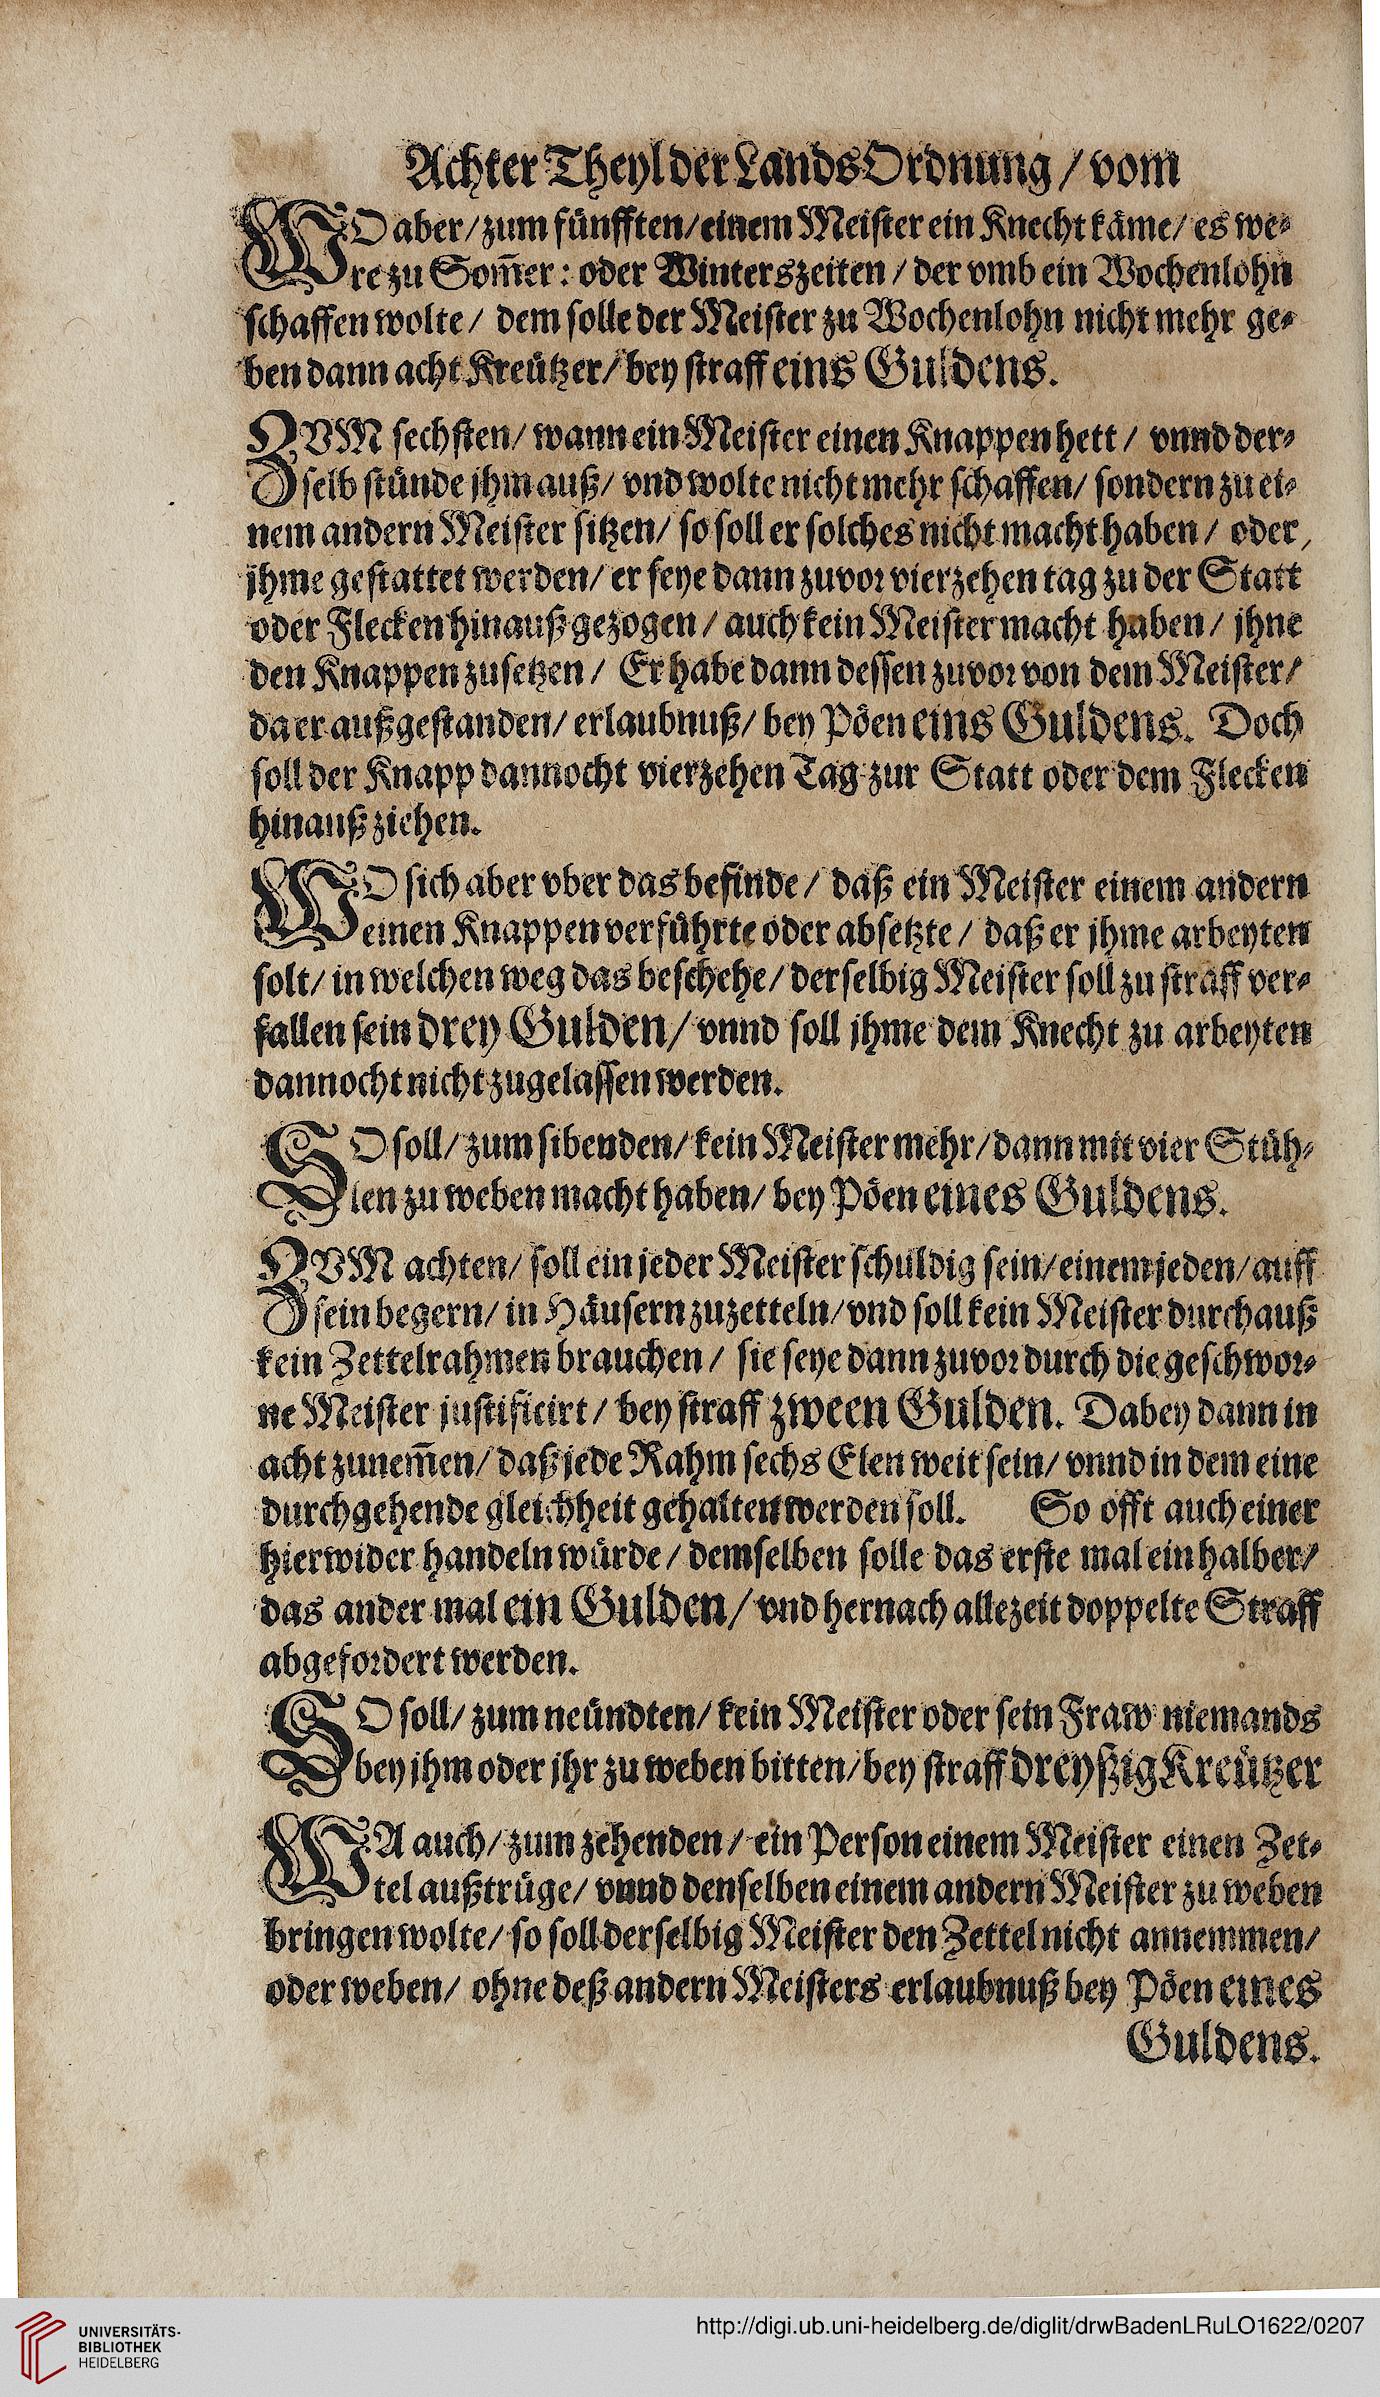 Achter Theyl der LandsOrdnung / vom
WO aber / zum fünfften / einem Meister ein Knecht käme / es we-
re zu Som̄er: oder Winterszeiten / der vmb ein Wochenlohn
schaffen wolte / dem solle der Meister zu Wochenlohn nicht mehr ge-
ben dann acht Kreützer / bey straff eins Guldens.
ZVM sechsten / wann ein Meister einen Knappen hett / vnnd der-
selb stünde jhm auß / vnd wolte nicht mehr schaffen / sondern zu ei-
nem andern Meister sitzen / so soll er solches nicht macht haben / oder
jhme gestattet werden / er seye dann zuvor vierzehen tag zu der Statt
oder Flecken hinauß gezogen / auch kein Meister macht haben / jhne
den Knappen zusetzen / Er habe dann dessen zuvor von dem Meister /
da er außgestanden / erlaubnuß / bey Pöen eins Guldens. Doch
soll der Knapp dannocht vierzehen Tag zur Statt oder dem Flecken
hinauß ziehen.
WO sich aber vber das befinde / daß ein Meister einem andern
einen Knappen verführte oder absetzte / daß er jhme arbeyten
solt / in welchen weg das beschehe / derselbig Meister soll zu straff ver-
fallen sein drey Gulden / vnnd soll jhme dem Knecht zu arbeyten
dannocht nicht zugelassen werden.
SO soll / zum sibenden / kein Meister mehr / dann mit vier Stüh-
len zu weben macht haben / bey Pöen eines Guldens.
ZVM achten / soll ein jeder Meister schuldig sein / einem jeden / auff
sein begern / in Häusern zuzetteln / vnd soll kein Meister durchauß
kein Zettelrahmen brauchen / sie seye dann zuvor durch die geschwor-
ne Meister justificirt / bey straff zween Gulden. Dabey dann in
acht zunem̄en / daß jede Rahm sechs Elen weit sein / vnnd in dem eine
durchgehende gleichheit gehalten werden soll. So offt auch einer
hierwider handeln würde / demselben solle das erste mal ein halber /
das ander mal ein Gulden / vnd hernach allezeit doppelte Straff
abgefordert werden.
SO soll / zum neündten / kein Meister oder sein Fraw niemands
bey jhm oder jhr zu weben bitten / bey straff dreyßig Kreützer
WA auch / zum zehenden / ein Person einem Meister einen Zet-
tel außtrüge / vnnd denselben einem andern Meister zu weben
bringen wolte / so soll derselbig Meister den Zettel nicht annemmen /
oder weben / ohne deß andern Meisters erlaubnuß bey Pöen eines
Guldens.
UNIVERSITÄTS-
BIBLIOTHEK
HEIDELBERG
http://digi.ub.uni-heidelberg.de/diglit/drwBadenLRuLO1622/0207